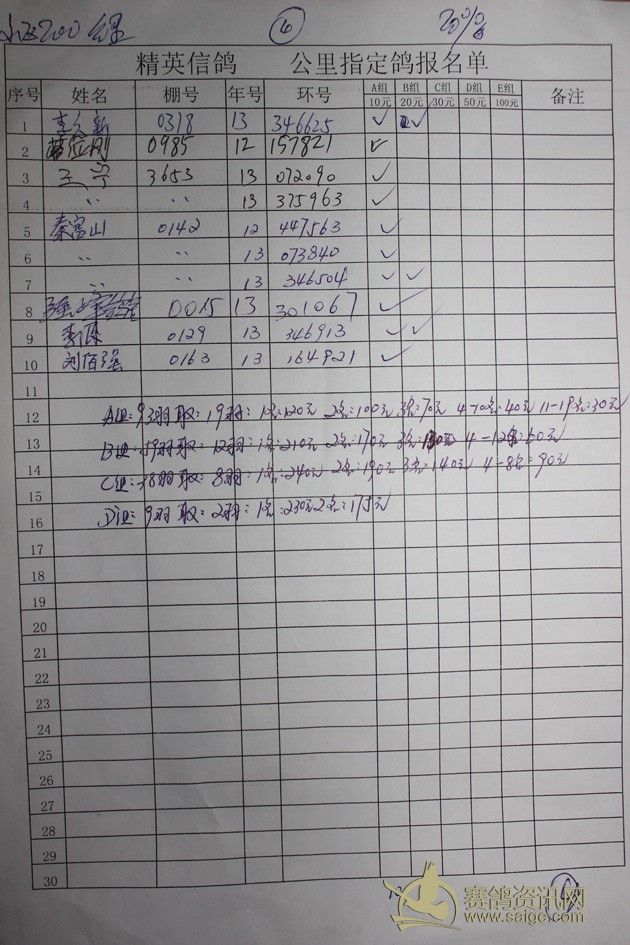 200公里 ④ 20%
精英信鸽 公里指定鸽报名单
序号 姓名 棚号 年号 环号 A组 10元 B组 20元 C组 30元 D组 50元 E组 100元 备注
1 李久新 0318 13 346625 ✓ ✓
2 0985 12 157821 ✓
3 王宁 3653 13 072090 ✓
4 〃 〃 13 375963 ✓
5 秦富山 0142 12 447563 ✓
6 〃 〃 13 073840 ✓
7 〃 〃 13 346504 ✓ ✓
8 0015 13 301067 ✓
9 0129 13 346913 ✓ ✓
10 刘佰强 0163 13 164921 ✓
11
12 A组:93羽取:19羽:1名:120元 2名:100元 3名:70元 4-10名:40元 11-19名:30元
13 B组:59羽取:12羽:1名:210元 2名:170元 3名:130元 4-12名:60元
14 C组:38羽取:8羽:1名:240元 2名:190元 3名:140元 4-8名:90元
15
16 D组:9羽取:2羽:1名:230元 2名:175元
17
18
19
20
21
22
23
24
25
26
27
28
29
30
赛鸽资讯网
www.saige.com